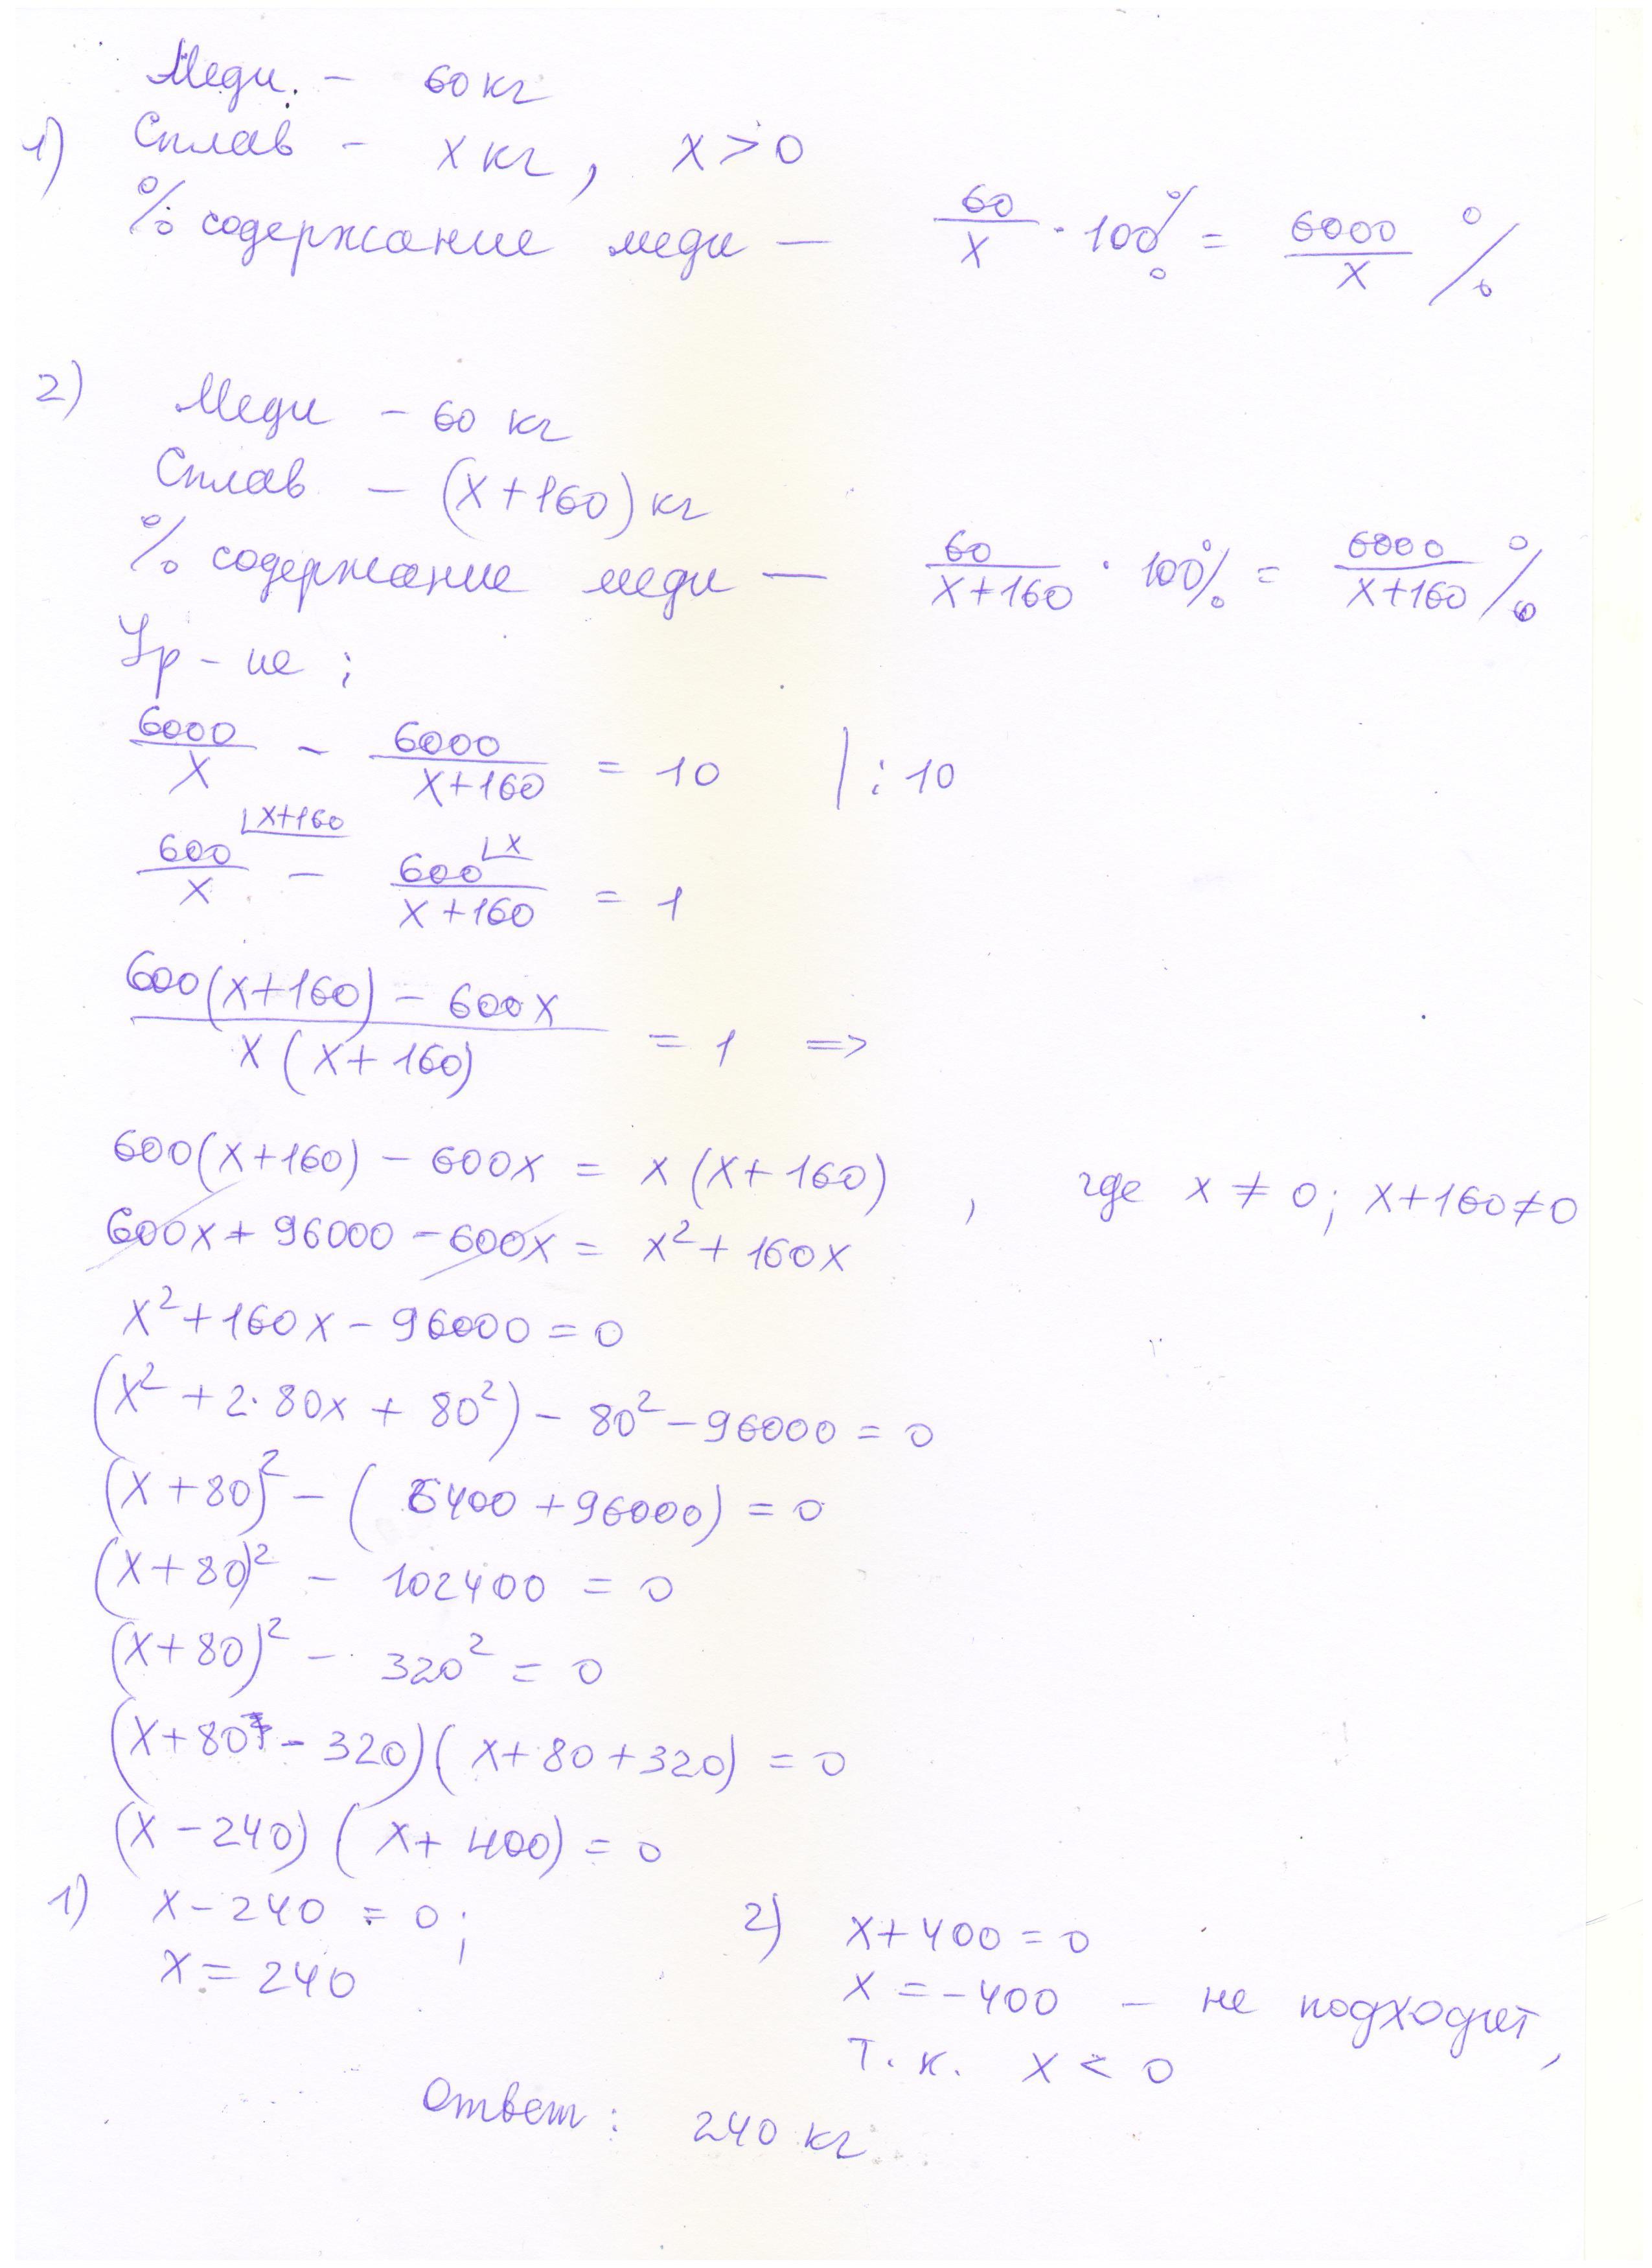 Меди. - 60 кг
1) Сплав - x кг, x > 0
% содержание меди — 60/x · 100% = 6000/x %
2) Меди - 60 кг
Сплав — (x+160) кг
% содержание меди — 60/(x+160) · 100% = 6000/(x+160) %
Ур-ие :
6000/x - 6000/(x+160) = 10 | : 10
600/x ⌊x+160 - 600/(x+160) ⌊x = 1
(600(x+160) - 600x)/(x(x+160)) = 1 =>
600(x+160) - 600x = x(x+160) , где x ≠ 0; x+160≠0
600x + 96000 - 600x = x² + 160x
x² + 160x - 96000 = 0
(x² + 2·80x + 80²) - 80² - 96000 = 0
(x + 80)² - (6400 + 96000) = 0
(x + 80)² - 102400 = 0
(x + 80)² - 320² = 0
(x + 80 - 320)(x + 80 + 320) = 0
(x - 240)(x + 400) = 0
1) x - 240 = 0; 2) x + 400 = 0
x = 240 x = -400 - не подходит,
т. к. x < 0
Ответ: 240 кг